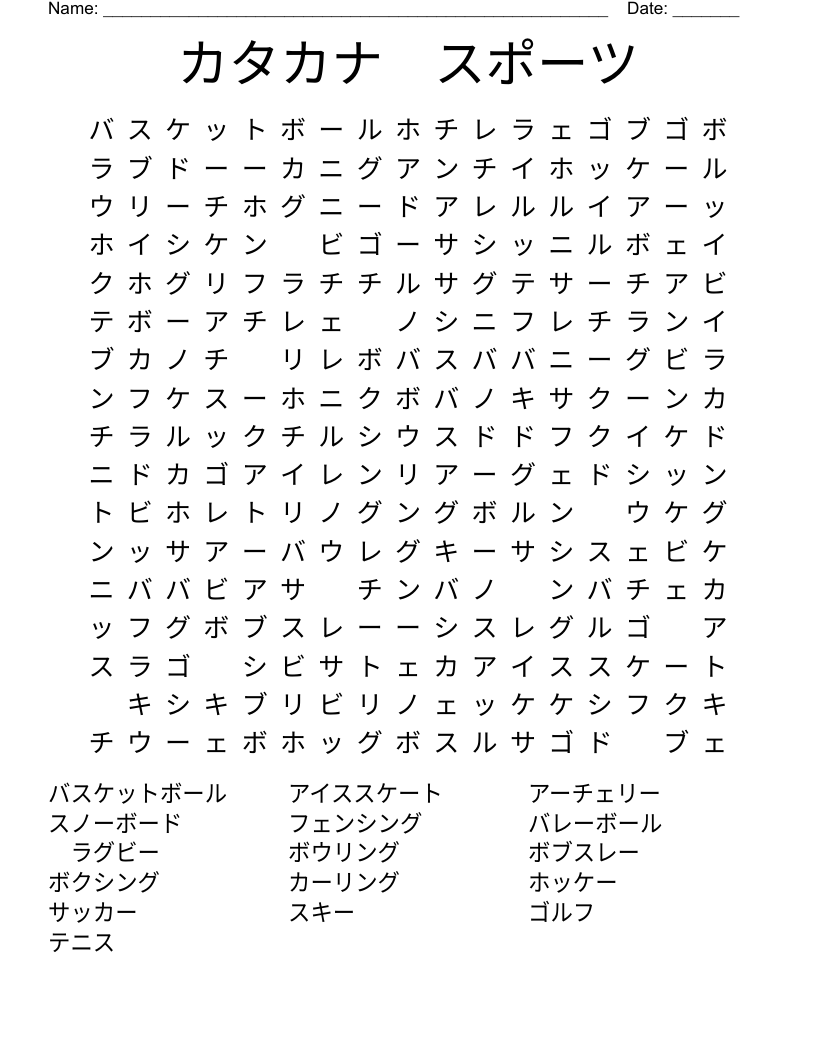 Name: ______________________________________________________ Date: _______
カタカナ　スポーツ
バ ス ケ ッ ト ボ ー ル ホ チ レ ラ ェ ゴ ブ ゴ ボ
ラ ブ ド ー ー カ ニ グ ア ン チ イ ホ ッ ケ ー ル
ウ リ ー チ ホ グ ニ ー ド ア レ ル ル イ ア ー ッ
ホ イ シ ケ ン 　 ビ ゴ ー サ シ ッ ニ ル ボ ェ イ
ク ホ グ リ フ ラ チ チ ル サ グ テ サ ー チ ア ビ
テ ボ ー ア チ レ ェ 　 ノ シ ニ フ レ チ ラ ン イ
ブ カ ノ チ 　 リ レ ボ バ ス バ バ ニ ー グ ビ ラ
ン フ ケ ス ー ホ ニ ク ボ バ ノ キ サ ク ー ン カ
チ ラ ル ッ ク チ ル シ ウ ス ド ド フ ク イ ケ ド
ニ ド カ ゴ ア イ レ ン リ ア ー グ ェ ド シ ッ ン
ト ビ ホ レ ト リ ノ グ ン グ ボ ル ン 　 ウ ケ グ
ン ッ サ ア ー バ ウ レ グ キ ー サ シ ス ェ ビ ケ
ニ バ バ ビ ア サ 　 チ ン バ ノ 　 ン バ チ ェ カ
ッ フ グ ボ ブ ス レ ー ー シ ス レ グ ル ゴ 　 ア
ス ラ ゴ 　 シ ビ サ ト ェ カ ア イ ス ス ケ ー ト
　 キ シ キ ブ リ ビ リ ノ ェ ッ ケ ケ シ フ ク キ
チ ウ ー ェ ボ ホ ッ グ ボ ス ル サ ゴ ド 　 ブ ェ
バスケットボール アイススケート アーチェリー
スノーボード フェンシング バレーボール
　ラグビー ボウリング ボブスレー
ボクシング カーリング ホッケー
サッカー スキー ゴルフ
テニス